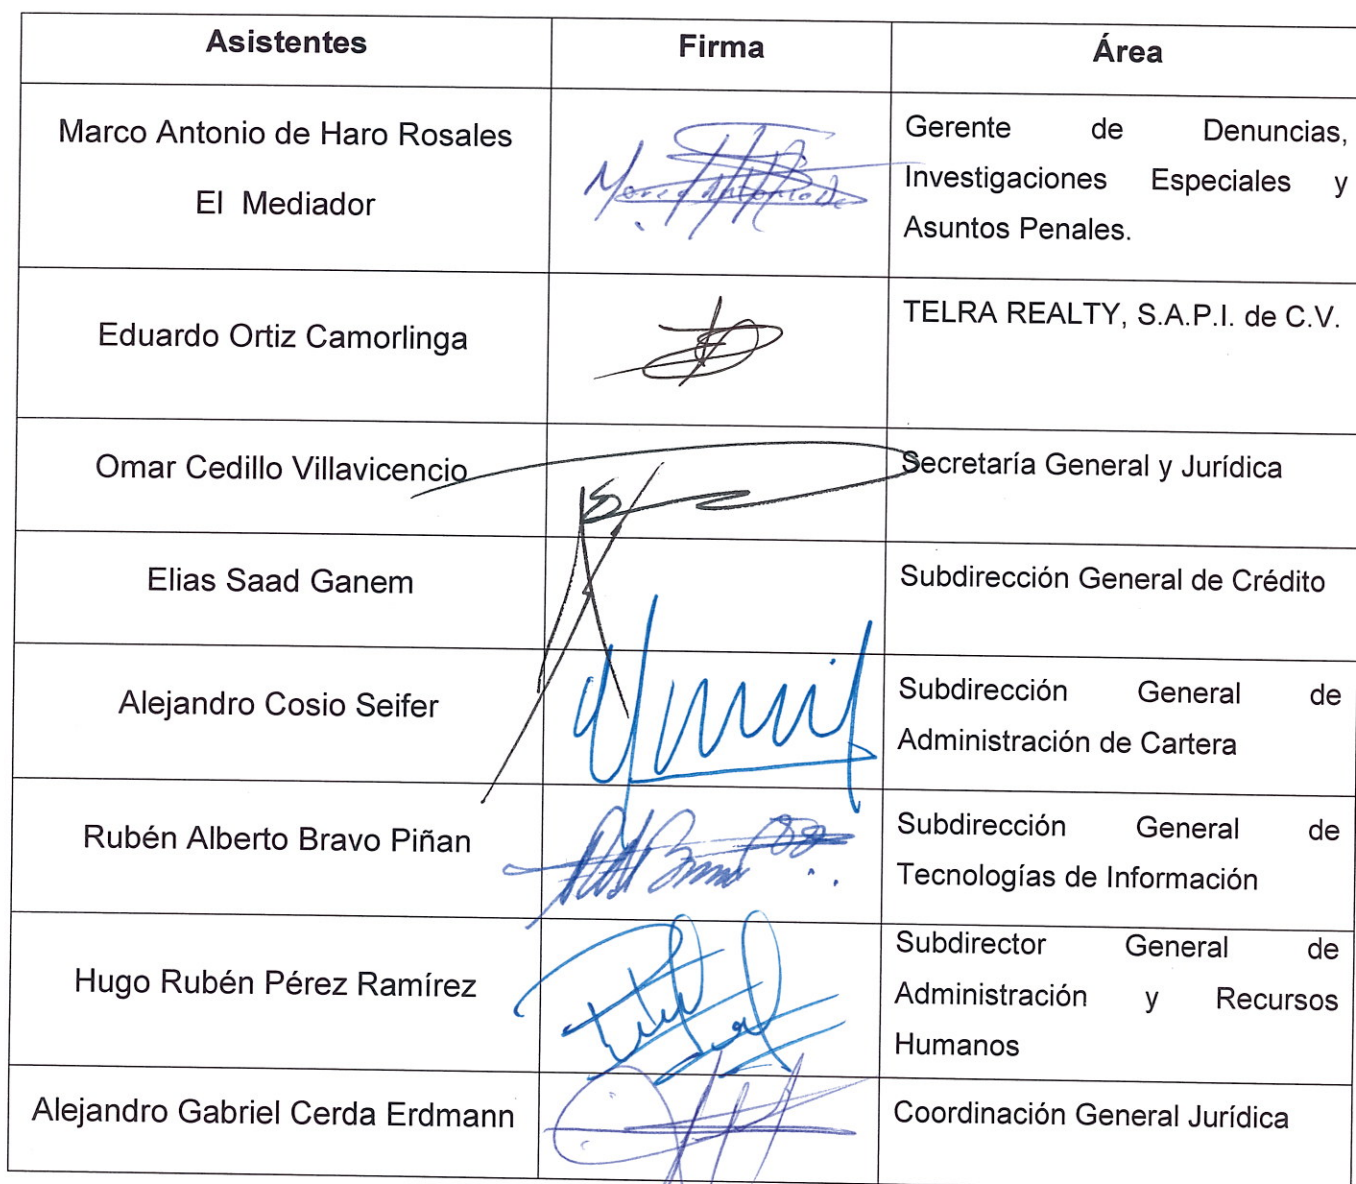 Asistentes Firma Área
Marco Antonio de Haro Rosales
El Mediador
Marco Antonio de
Gerente de Denuncias,
Investigaciones Especiales y
Asuntos Penales.
Eduardo Ortiz Camorlinga
TELRA REALTY, S.A.P.I. de C.V.
Omar Cedillo Villavicencio
Secretaría General y Jurídica
Elias Saad Ganem
Subdirección General de Crédito
Alejandro Cosio Seifer
Subdirección General de
Administración de Cartera
Rubén Alberto Bravo Piñan
Subdirección General de
Tecnologías de Información
Hugo Rubén Pérez Ramírez
Subdirector General de
Administración y Recursos
Humanos
Alejandro Gabriel Cerda Erdmann
Coordinación General Jurídica